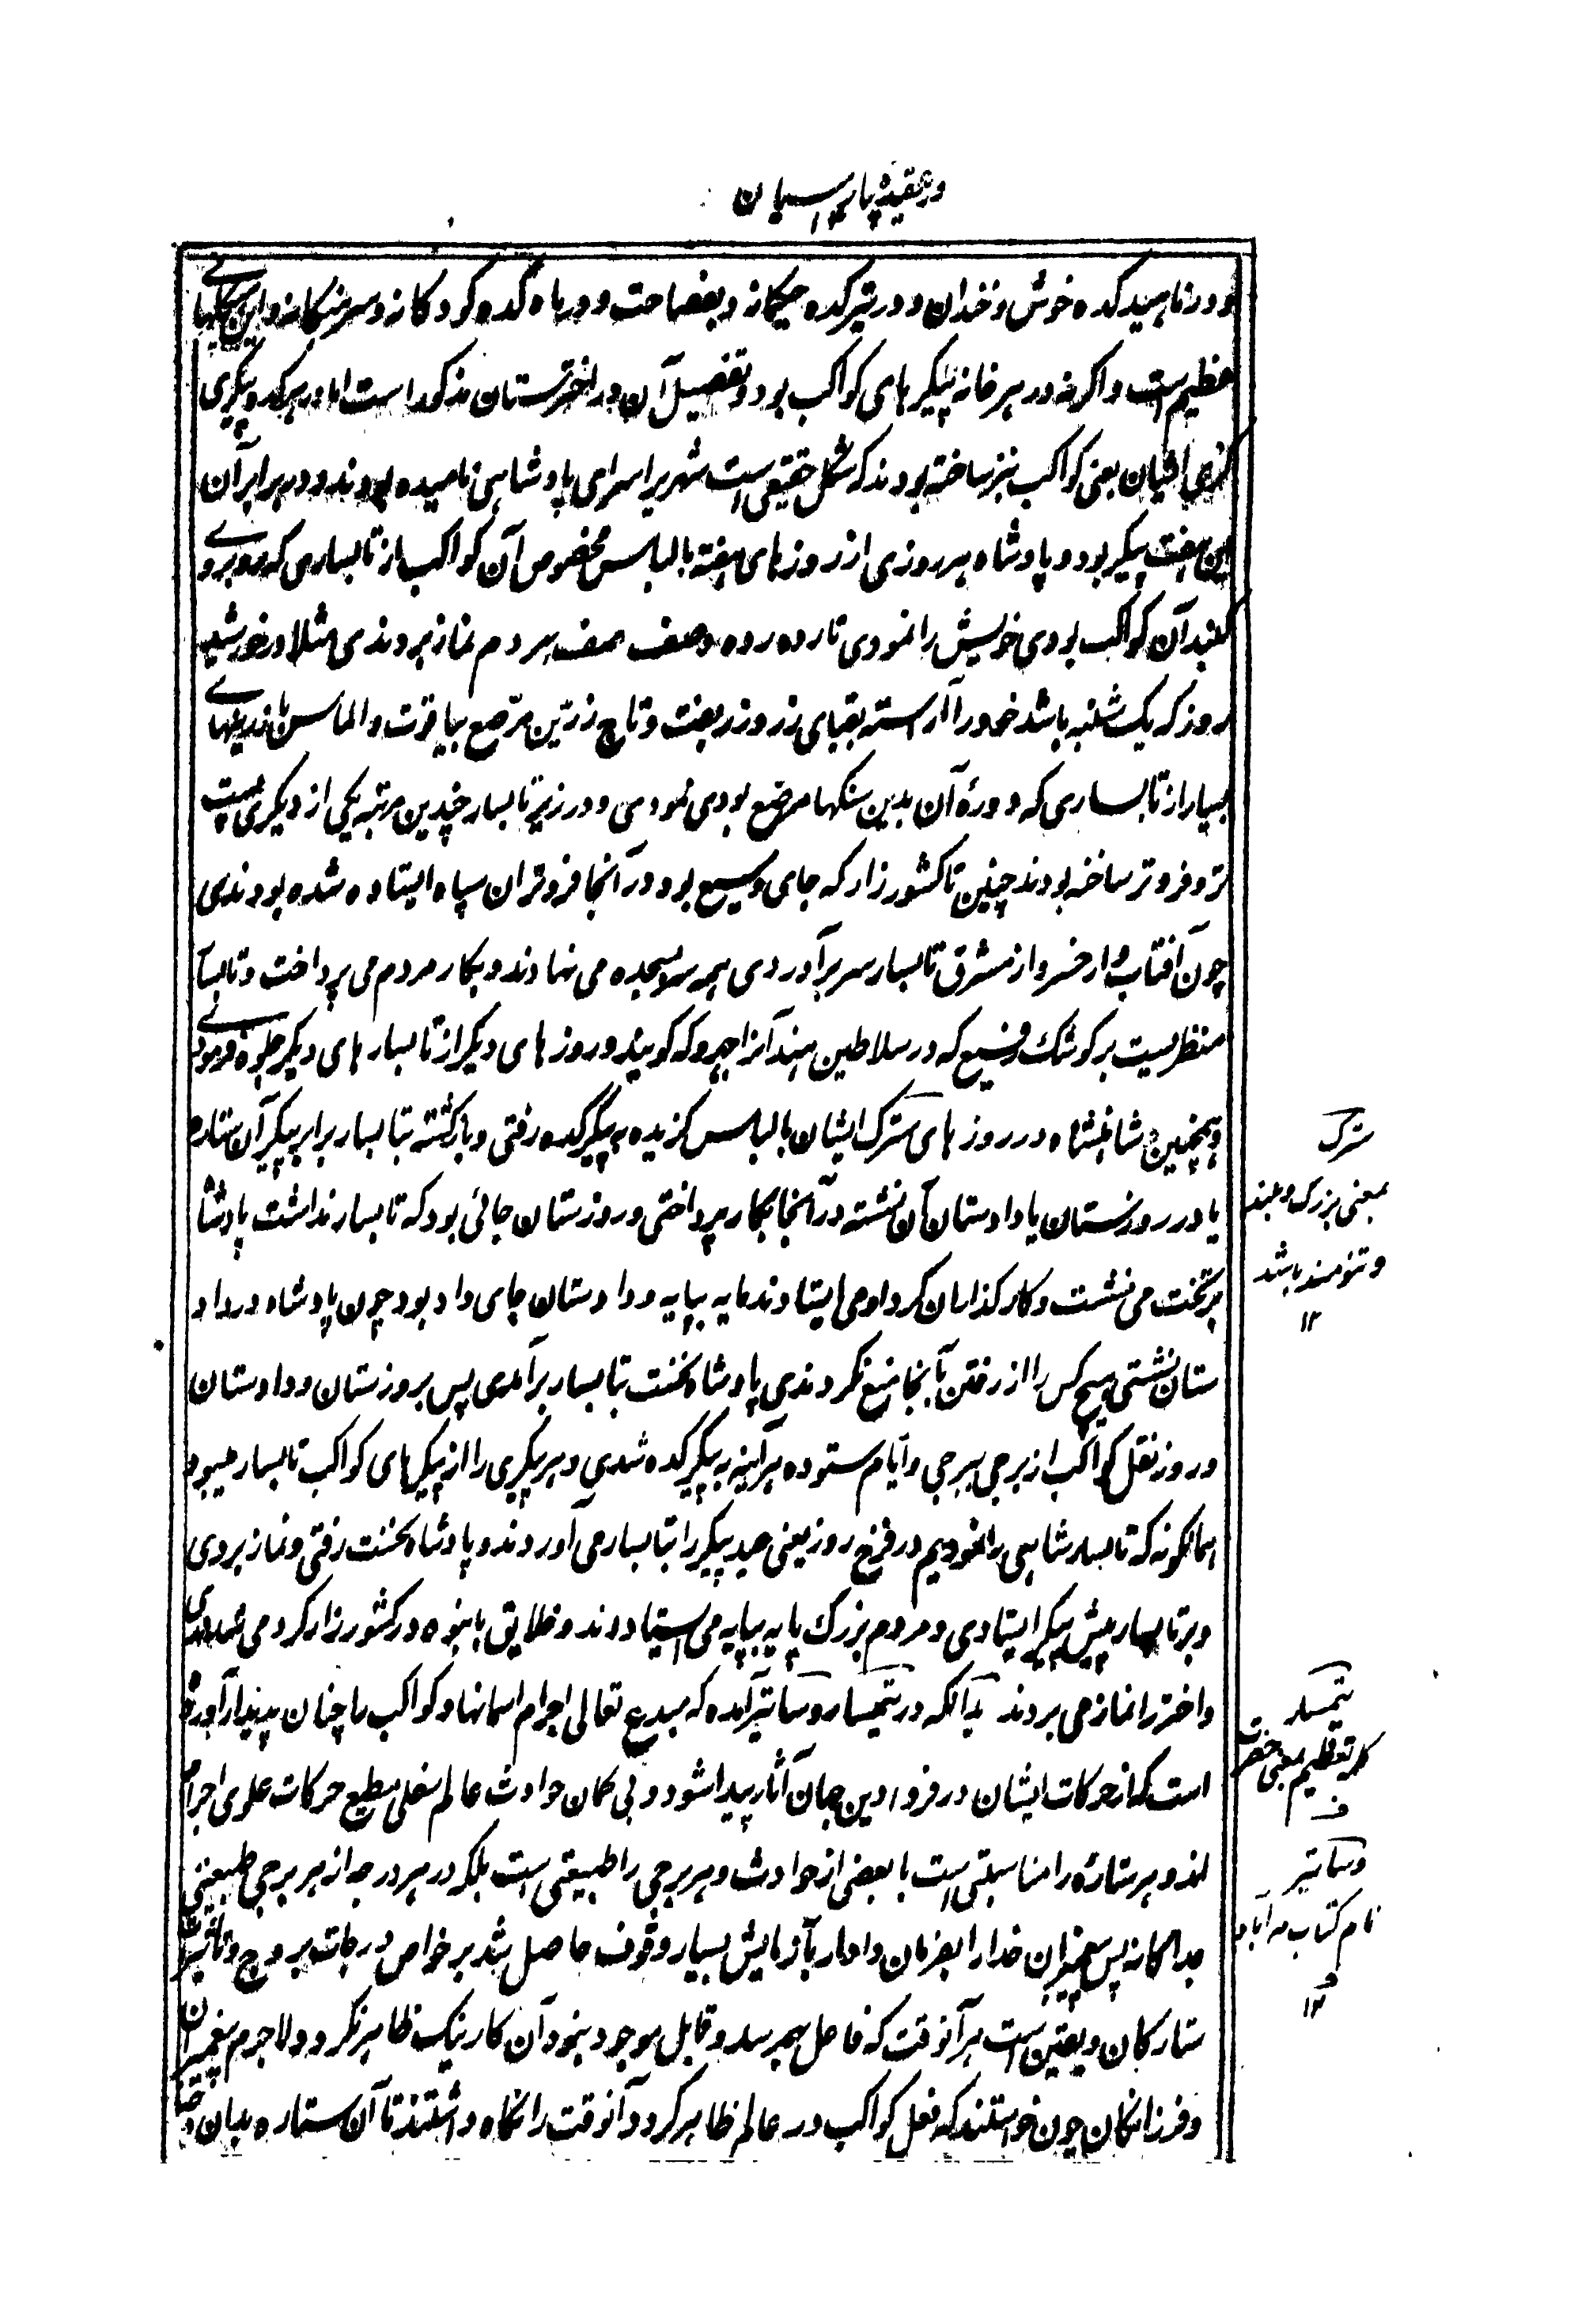 در عقیده پارسیان
و در ناهید کده خوش و خندان و در تیرکده حکیمانه و بفصاحت و در ماه کده کودکانه و سرهنگانه و این پیکرهای
عظیم است و اگرنه در هر خانه پیکرهای کواکب بود و تفصیل آن در اخترستان مذکور است اما در هر پیکرکده پیکری
گروی افتیان یعنی کواکب نیز ساخته بودند که شکل حقیقی است شهر پر اسرای پادشاهی نامیده بودند و در برابر آن
این هفت پیکر بود و پادشاه هر روزی از روزهای هفته با لباس مخصوص آن کواکب از تابساری که روبروی
گنبد آن کواکب بودی خویش را نمودی تا رده رده و صف صف مردم نماز بردندی مثلا در خورشید
روز که یکشنبه باشد خود را آراسته بقبای زرد زربفت و تاج زرین مرصع بیاقوت و الماس با زیبهای
بسیار از تابساری که دوره آن بدین سنگها مرصع بودی نمودی و در زیر تابسار چندین مرتبه یکی از دیگری پست
تر و فروتر ساخته بودند چنین تا کشورزار که جای وسیع بود در آنجا فروتران سپاه ایستاده شده بودندی
چون آفتاب وار خسرو از مشرق تابسار سر برآوردی همه سر بسجده می نهادند و بکار مردم می پرداخت و تابسار
منظریست بر کوشک رفیع که در سلاطین هند آنرا جهروکه گویند و روزهای دیگر از تابسارهای دیگر جلوه فرمودی
و همچنین شاهنشاه در روزهای سترک ایشان با لباس گزیده به پیکرکده رفتی و بازگشته بتابسار برابر پیکر آن ستاره
یا در روزستان یا دادستان آن نشسته در آنجا بکار پرداختی و روزستان جائی بود که تابسار نداشت پادشاه
بر تخت می نشست و کارگذاران گرد او می ایستادند مایه بپایه و دادستان جای داد بود چون پادشاه در داد
ستان نشستی هیچ کس را از رفتن بآنجا منع نکردندی پادشاه نخست بتابسار برآمدی پس بروزستان و دادستان
و روز نقل کواکب از برجی ببرجی و ایام ستوده هر آینه به پیکرکده شدی و هر پیکری را از پیکرهای کواکب تابسار میبود
همانگونه که تابسار شاهی را نمودیم در فرخ روز یعنی عید پیکر را بتابسار می آوردند و پادشاه نخست رفتی و نماز بردی
و بر تابسار پیش پیکر ایستادی و مردم بزرگ پایه بپایه می ایستادند و خلایق بانبوه در کشورزار گرد می شدندی
و اختر را نماز می بردند بدانکه در تیمسار وساتیر آمده که مبدع تعالی اجرام آسمانها و کواکب را چنان پدیدار آورده
است که از حرکات ایشان در فرودین جهان آثار پیدا شود و بی گمان حوادث عالم سفلی مطیع حرکات علوی اجرام
اند و هر ستاره را مناسبتی است با بعضی از حوادث و هر برجی را طبیعتی است بلکه در هر درجه از هر برجی طبیعتی
جداگانه پس پیغمبران خدا را بفرمان دادار بآزمایش بسیار وقوف حاصل شد بر خواص درجات بروج و تاثیرات
ستارگان و یقین است هر آنوقت که فاعل بهم رسد و قابل موجود نبود آن کار نیک ظاهر نگردد و لاجرم پیغمبران
و فرزانگان چون خواستند که فعل کواکب در عالم ظاهر گردد آنوقت را نگاه داشتند تا آن ستاره بدان
سترک
بمعنی بزرگ و بلند
و تنومند باشد
۱۲
تیمسار
کلمه تعظیم بمعنی حضرت
ف
وساتیر
نام کتاب مه آباد
۱۲